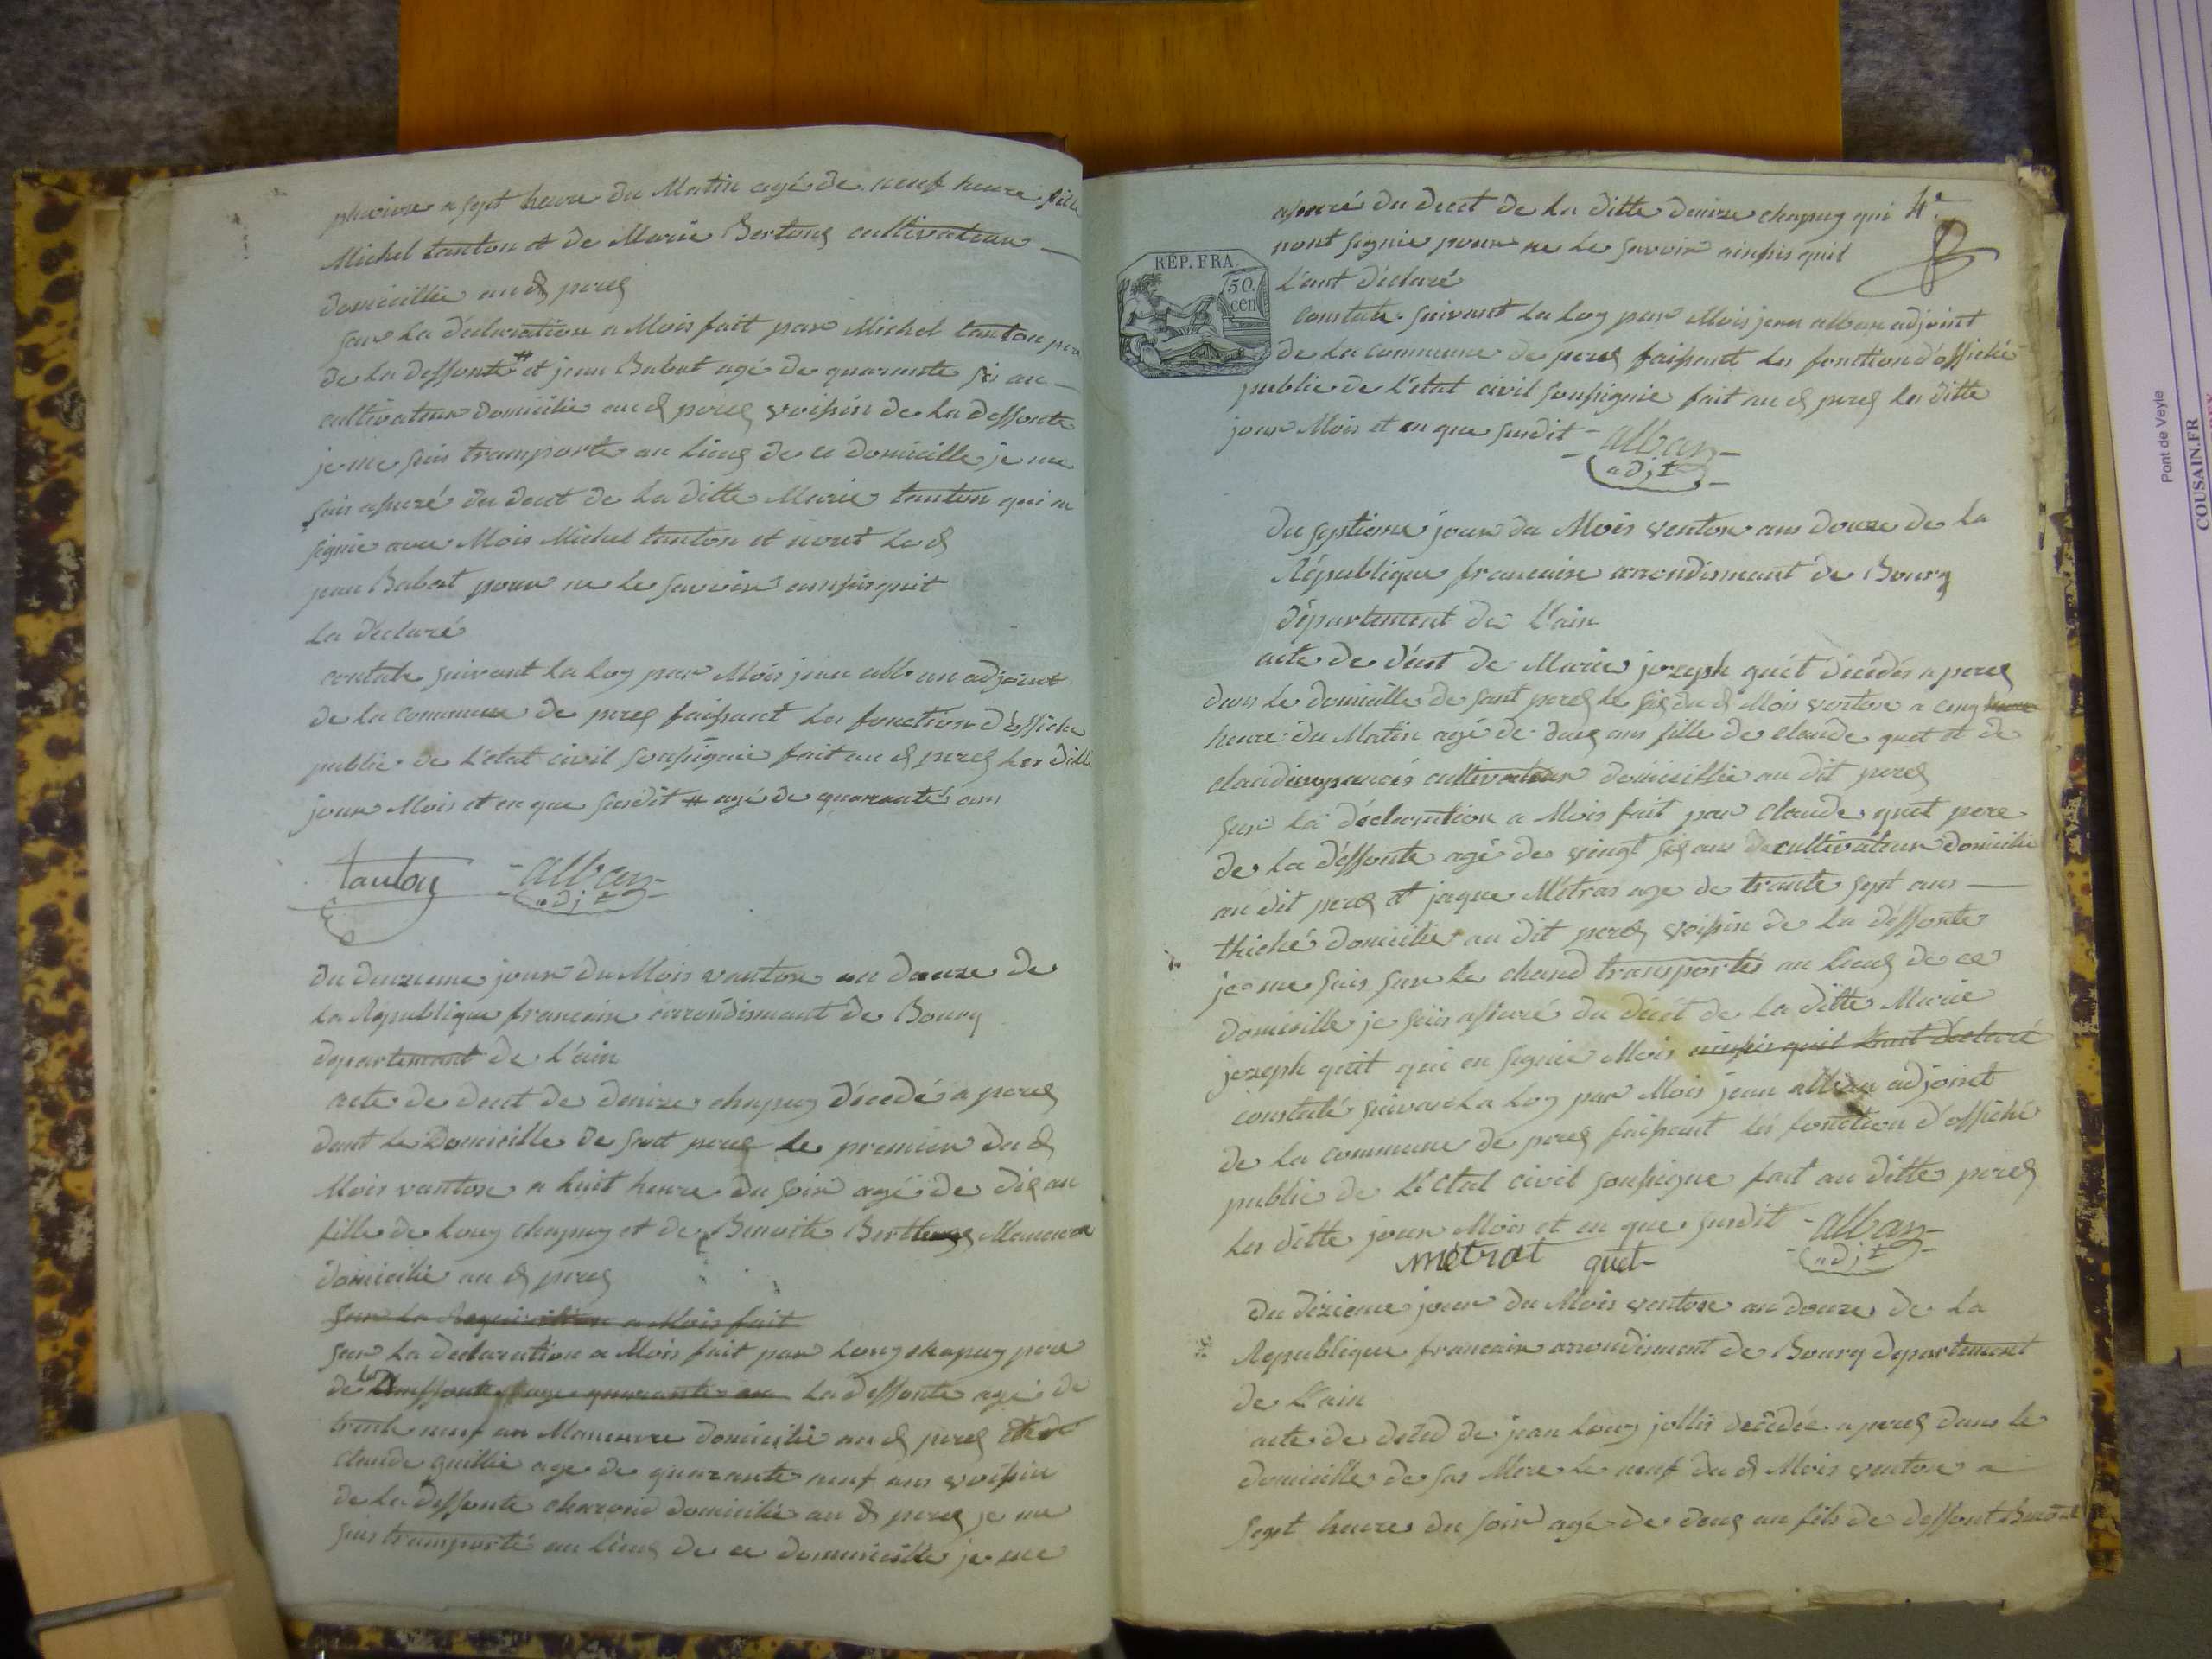 pluviose a sept heure du Matin agé de neuf heure fille
Michel tanton et de Marie Bertong cultivateur
domicillie au d perex
sur la déclaration a Mois fait par Michel tanton pere
de la deffonte # et jean Babat agé de quarente six an
cultivateur domicilie au d perex voisin de la deffonte
je me suis transporte au lieux de ce domicille je me
suis asuré du decet de la ditte Marie tanton qui a
signie avec Mois Michel tanton et nont le d
jean Babat pour ne le savoir ainsis quit
la déclaré
contate suivant la loy par Mois jean alban adjoint
de la commune de perex faisant les fonction d'officie
public de l'etat civil sousignie fait au d perex les ditte
jour Mois et en que susdit # agé de quarante ans
tanton - alban -
adjt
du deuzieme jour du Mois vantose an douze de
la République francaise arrondismant de Bourg
departemant de l'ain
acte de decet de denize chapuy décedé a perex
dant le domicille de son perex le premier du d
Mois vantose a huit heure du soir agé de dix an
fille de louy chapuy et de Benoite Manuvre
domicilie au d perex
sur la Requisition a Mois fait
sur la declaration a Mois fait par louy chapuy pere
de la deffonte agé de
trente neuf an Manuvre domicilie au d perex et de
claude guillie age de quarante neuf ans voisin
de la deffonte charond domicilié au d perex je me
suis transporté au lieux de ce domicille je me
asuré du decet de la ditte denize chapuy qui 4e
nont signie pour ne le savoir ainsis quil
RÉP. FRA.
50.
cen
l'ont déclaré
constate suivant la loy par Mois jean alban adjoint
de la commune de perex faisant les fonction d'officié
public de l'etat civil sousignie fait au d perex les ditte
jour Mois et en que susdit - alban -
adjt
du septieme jour du Mois ventose ans douze de la
République francaise arrondismant de Bourg
département de l'ain
acte de décet de Marie jozeph guét décédés a perex
dans le domicille de sant perex le six du d Mois ventose a cinq heure
heure du Matin agé de deux ans fille de claude guet et de
claudine cultivateur domicillie au dit perex
sur la déclaration a Mois fait par claude guet pere
de la déffonte agé de vingt six ans cultivateur domicilie
au dit perex et jaque Métras age de trante sept ans
domicilie au dit perex voisin de la déffonte
je me suis sur le chand transportés au lieux de ce
domicille je suis asuré du décet de la ditte Marie
jozeph guét qui on signie Mois ainsis quil l'ont déclaré
constaté suivant la loy par Mois jean alban adjoint
de la commune de perex faisant les fonction d'officié
public de l'étal civil sousigne fait au ditte perex
les ditte jour Mois et en que susdit - alban -
métrat guet adjt
du dixieme jour du Mois ventose an douze de la
Republique francaise arrondisment de Bourg departement
de l'ain
acte de déced de jean louy jollis décédée a perex dans le
domicille de sas Mere le neuf du d Mois ventose a
sept heures du soir agé de deux an fils de deffont
Pont de Veyle
COUSAIN.FR